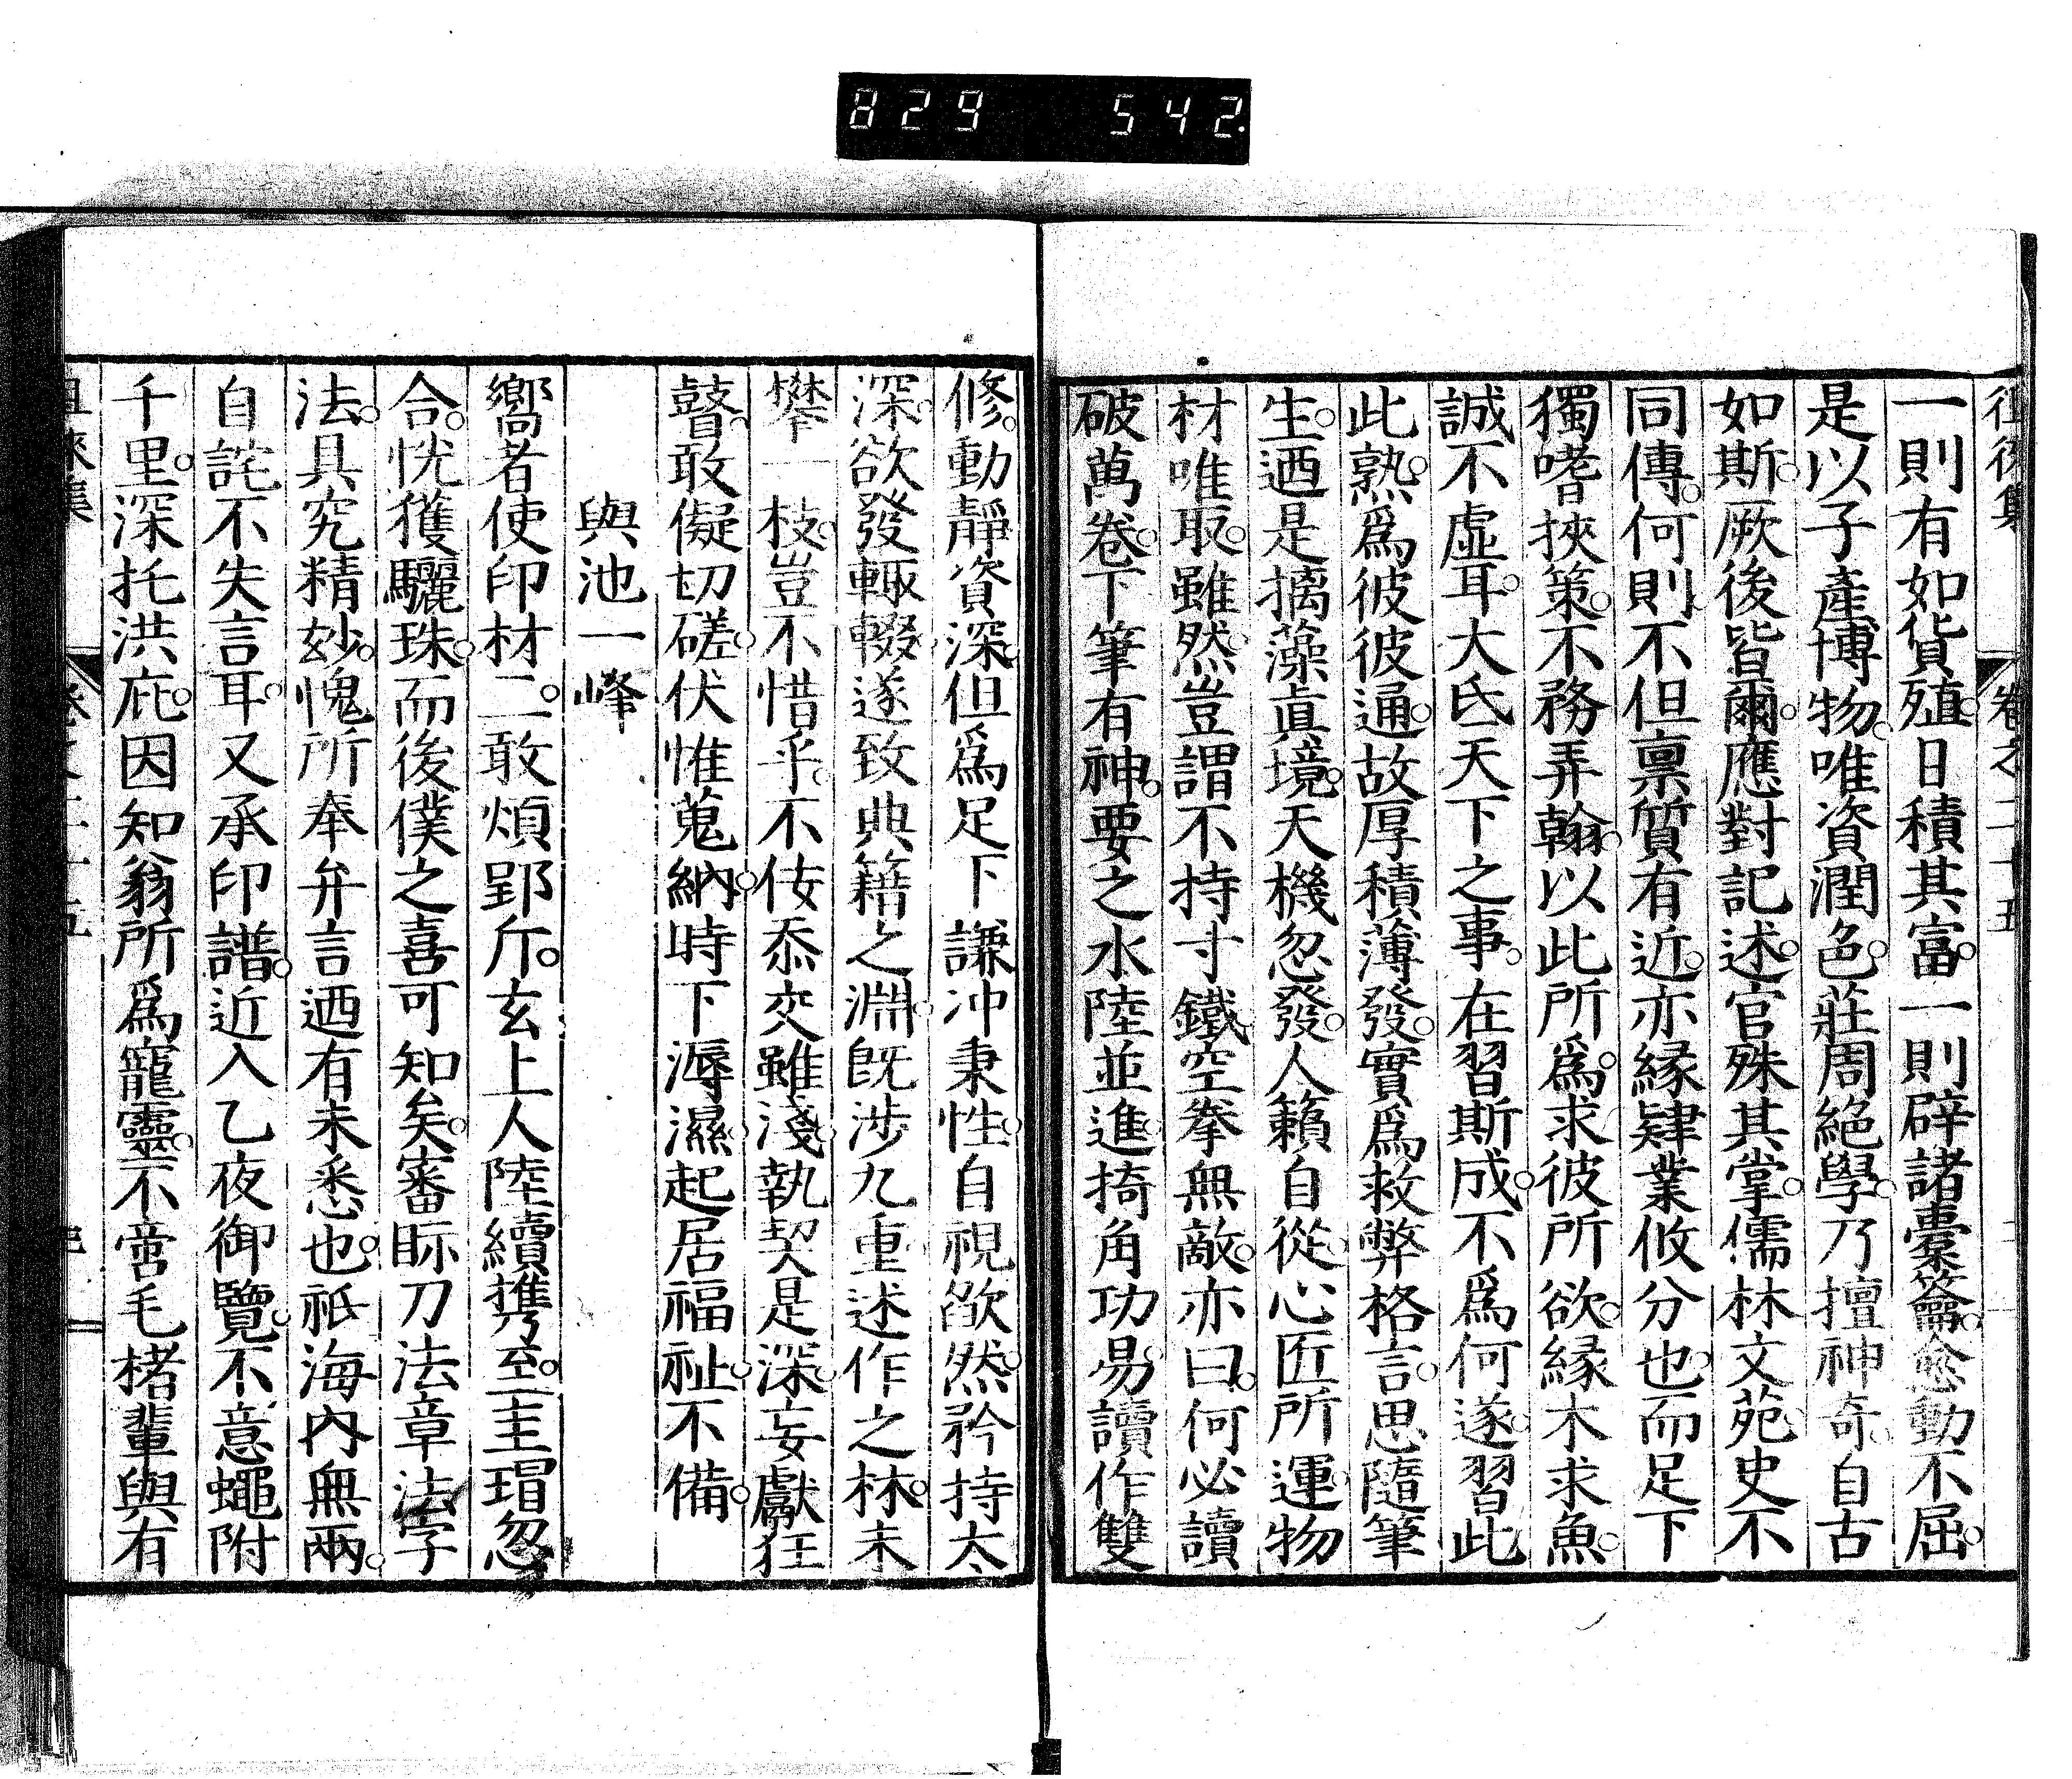 829 542.
徂徠集 卷之二十五 二
一則有如貨殖。日積其富。一則辟諸橐籥。愈動不屈。
是以子產博物。唯資潤色。莊周絕學。乃擅神奇。自古
如斯。厥後皆爾。應對記述。官殊其掌。儒林文苑。史不
同傳。何則。不但禀質有近。亦緣肄業攸分也。而足下
獨嗜挾策。不務弄翰。以此所爲。求彼所欲。緣木求魚。
誠不虛耳。大氐天下之事。在習斯成。不爲何遂。習此
此熟。爲彼彼通。故厚積薄發。實爲救弊格言。思隨筆
生。迺是摛藻眞境。天機忽發。人籟自從。心匠所運。物
材唯取。雖然。豈謂不持寸鐵。空拳無敵。亦曰。何必讀
破萬卷。下筆有神。要之水陸並進。掎角功易。讀作雙
修。動靜資深。但爲足下謙冲秉性。自視欿然。矜持太
深。欲發輒輟。遂致典籍之淵。既涉九重。述作之林。未
攀一枝。豈不惜乎。不佞忝交雖淺。執契是深。妄獻狂
瞽。敢儗切磋。伏惟蒐納。時下溽濕。起居福祉。不備。
與池一峰
嚮者使印材二。敢煩郢斤。玄上人陸續携至。圭瑁忽
合。恍獲驪珠。而後僕之喜可知矣。審眎刀法章法字
法。具究精妙。愧所奉弁言迺有未悉也。祇海內無兩。
自詫不失言耳。又承印譜。近入乙夜御覽。不意蠅附
千里。深托洪庇。因知翁所爲寵靈。不啻毛楮輩與有
徂徠集 卷之二十五